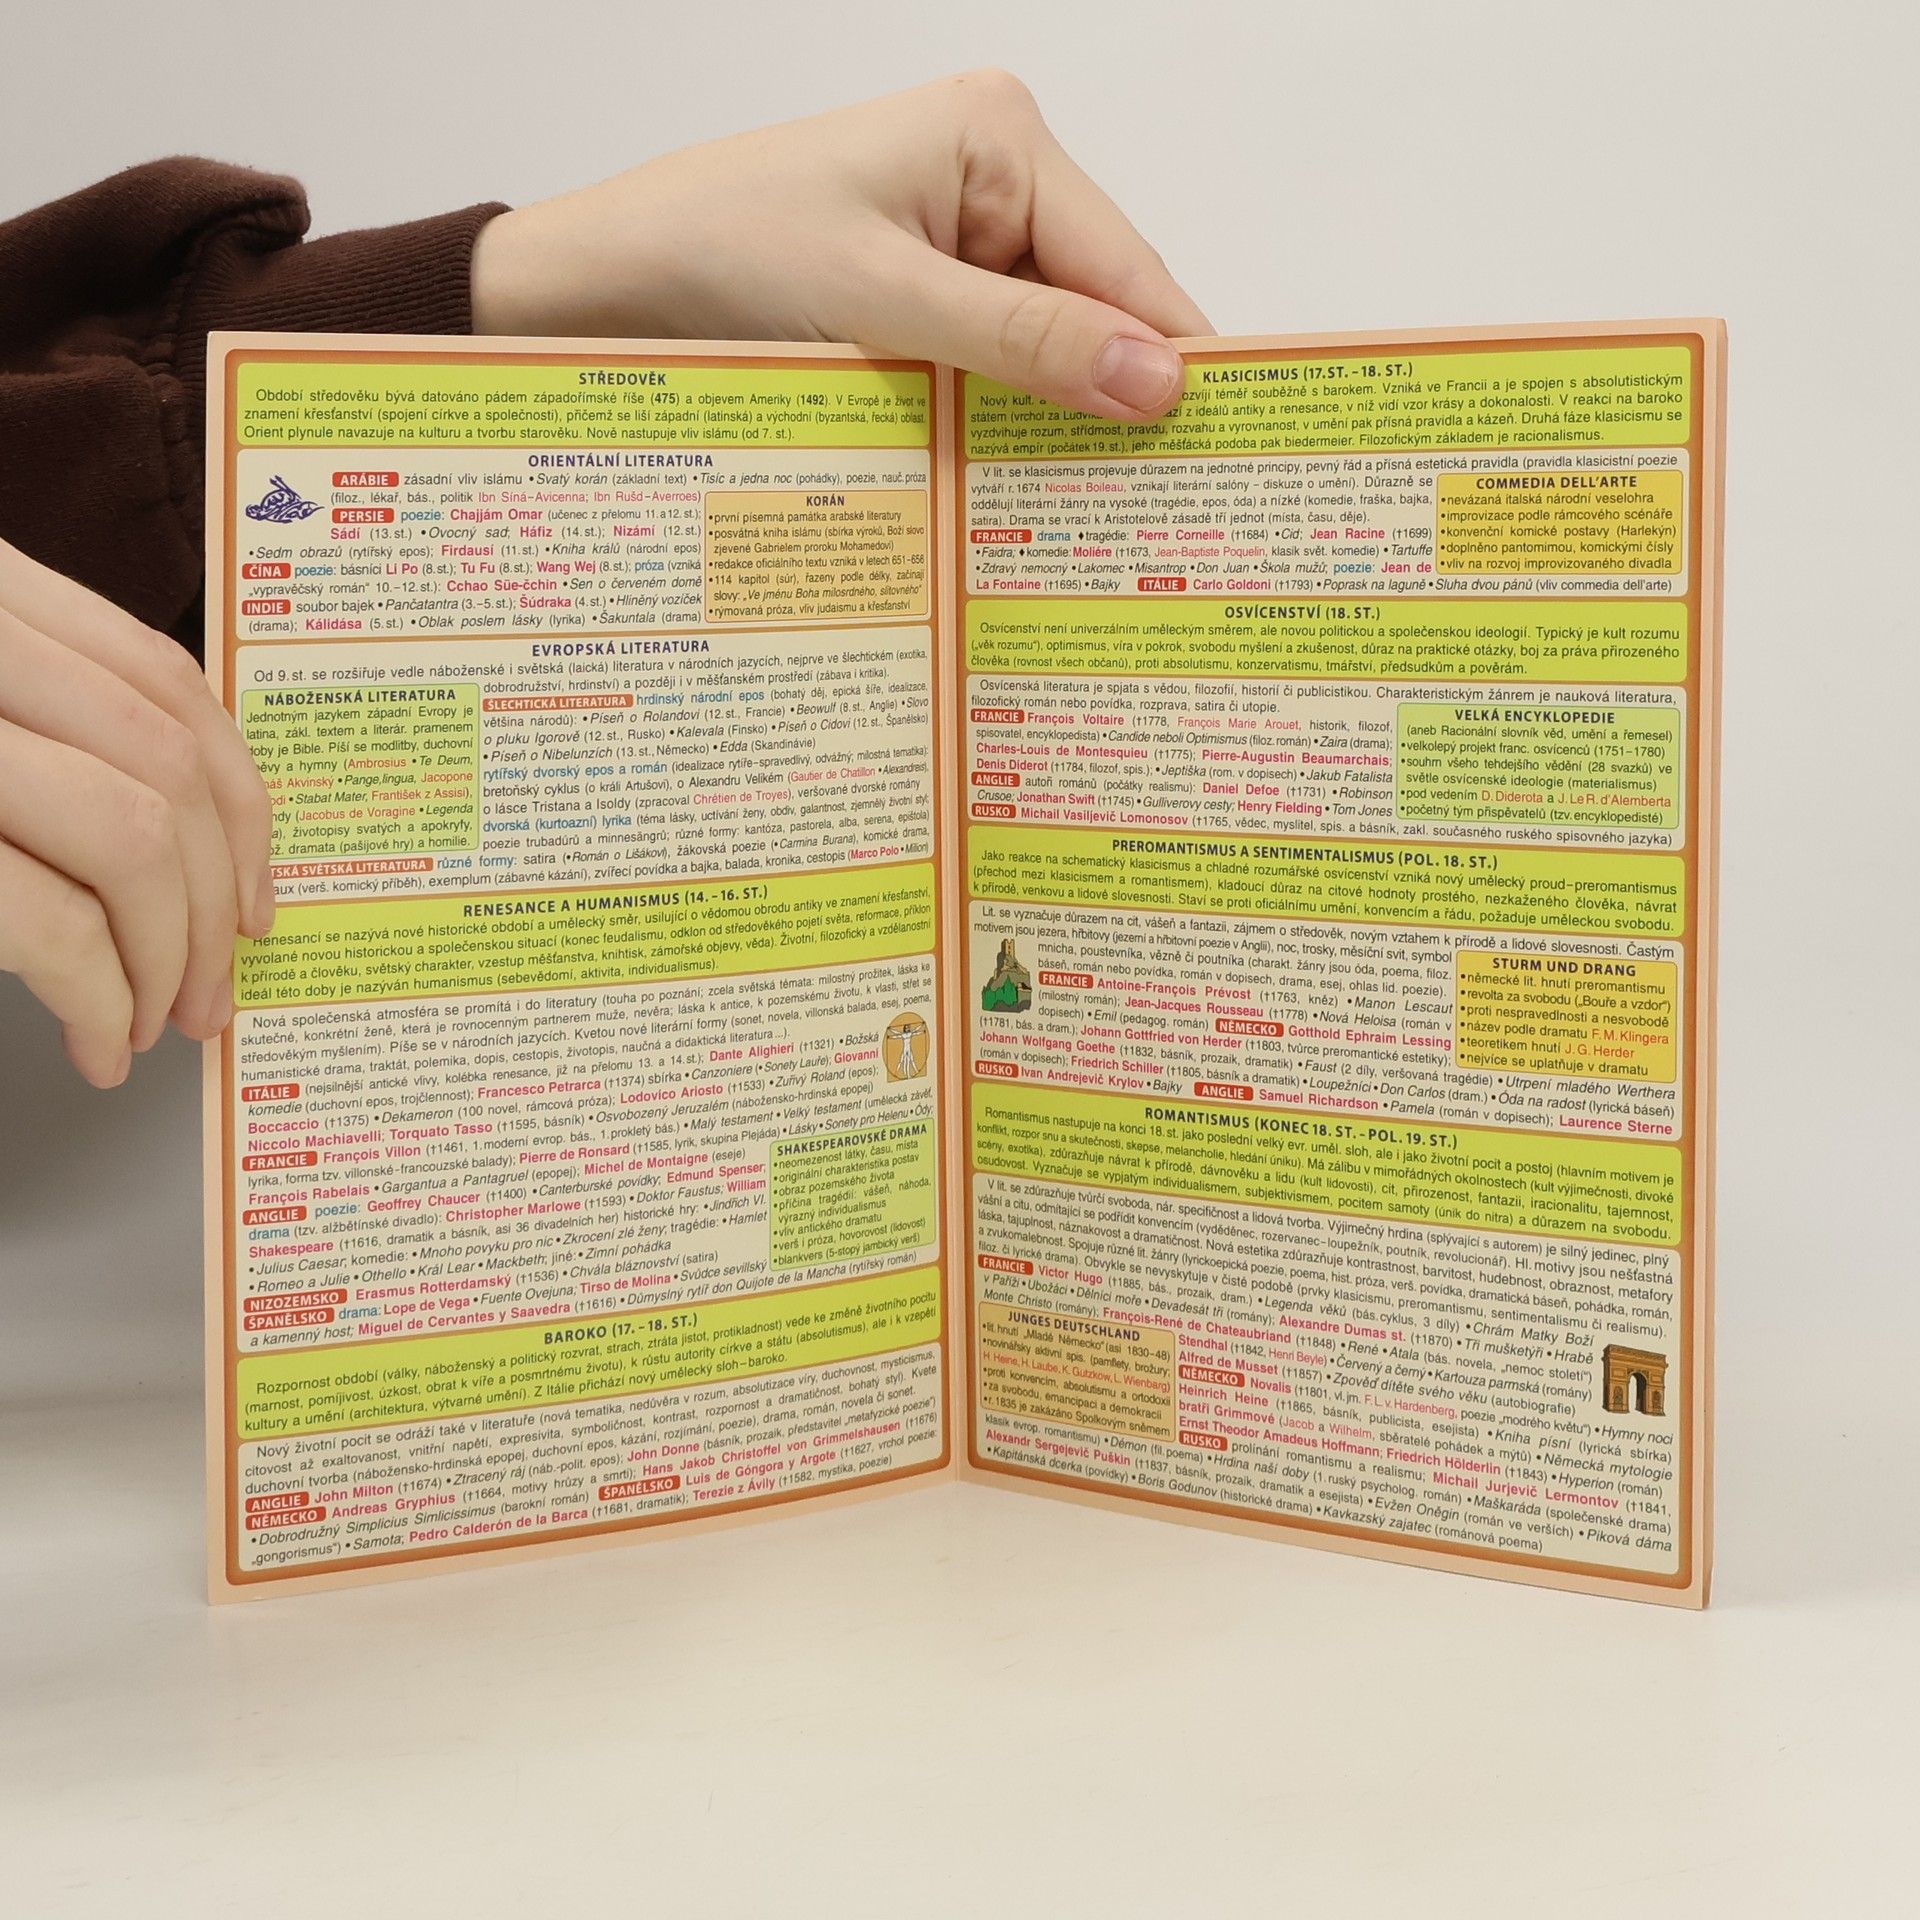 STŘEDOVĚK
Období středověku bývá datováno pádem západořímské říše (475) a objevem Ameriky (1492). V Evropě je život ve
znamení křesťanství (spojení církve a společnosti), přičemž se liší západní (latinská) a východní (byzantská, řecká) oblast.
Orient plynule navazuje na kulturu a tvorbu starověku. Nově nastupuje vliv islámu (od 7. st.).
ORIENTÁLNÍ LITERATURA
ARÁBIE zásadní vliv islámu • Svatý korán (základní text) • Tisíc a jedna noc (pohádky), poezie, nauč. próza
(filoz., lékař, bás., politik Ibn Síná–Avicenna; Ibn Rušd–Averroes)
PERSIE poezie: Chajjám Omar (učenec z přelomu 11. a 12. st.);
Sádí (13. st.) • Ovocný sad; Háfiz (14. st.); Nizámí (12. st.)
• Sedm obrazů (rytířský epos); Firdausí (11. st.) • Kniha králů (národní epos)
ČÍNA poezie: básníci Li Po (8. st.); Tu Fu (8. st.); Wang Wej (8. st.); próza (vzniká
„vypravěčský román“ 10.–12. st.): Cchao Süe-čchin • Sen o červeném domě
INDIE soubor bajek • Pančatantra (3.–5. st.); Šúdraka (4. st.) • Hliněný vozíček
(drama); Kálidása (5. st.) • Oblak poslem lásky (lyrika) • Šakuntala (drama)
KORÁN
• první písemná památka arabské literatury
• posvátná kniha islámu (sbírka výroků, Boží slovo
zjevené Gabrielem proroku Mohamedovi)
• redakce oficiálního textu vzniká v letech 651–656
• 114 kapitol (súr), řazeny podle délky, začínají
slovy: „Ve jménu Boha milosrdného, slitovného“
• rýmovaná próza, vliv judaismu a křesťanství
EVROPSKÁ LITERATURA
Od 9. st. se rozšiřuje vedle náboženské i světská (laická) literatura v národních jazycích, nejprve ve šlechtickém (exotika,
dobrodružství, hrdinství) a později i v měšťanském prostředí (zábava i kritika).
NÁBOŽENSKÁ LITERATURA
Jednotným jazykem západní Evropy je
latina, zákl. textem a literár. pramenem
doby je Bible. Píší se modlitby, duchovní
a hymny (Ambrosius • Te Deum,
Akvinský • Pange, lingua, Jacopone
• Stabat Mater, František z Assisi),
(Jacobus de Voragine • Legenda
životopisy svatých a apokryfy,
dramata (pašijové hry) a homilie.
ŠLECHTICKÁ LITERATURA hrdinský národní epos (bohatý děj, epická šíře, idealizace,
většina národů): • Píseň o Rolandovi (12. st., Francie) • Beowulf (8. st., Anglie) • Slovo
o pluku Igorově (12. st., Rusko) • Kalevala (Finsko) • Píseň o Cidovi (12. st., Španělsko)
• Píseň o Nibelunzích (13. st., Německo) • Edda (Skandinávie)
rytířský dvorský epos a román (idealizace rytíře–spravedlivý, odvážný; milostná tematika):
bretoňský cyklus (o králi Artušovi), o Alexandru Velikém (Gautier de Chatillon • Alexandreis),
o lásce Tristana a Isoldy (zpracoval Chrétien de Troyes), veršované dvorské romány
dvorská (kurtoazní) lyrika (téma lásky, uctívání ženy, obdiv, galantnost, zjemnělý životní styl;
poezie trubadúrů a minnesängrů; různé formy: kantóza, pastorela, alba, serena, epištola)
SVĚTSKÁ LITERATURA různé formy: satira (• Román o Lišákovi), žákovská poezie (• Carmina Burana), komické drama,
(verš. komický příběh), exemplum (zábavné kázání), zvířecí povídka a bajka, balada, kronika, cestopis (Marco Polo • Milion)
RENESANCE A HUMANISMUS (14. – 16. ST.)
Renesancí se nazývá nové historické období a umělecký směr, usilující o vědomou obrodu antiky ve znamení křesťanství,
vyvolané novou historickou a společenskou situací (konec feudalismu, odklon od středověkého pojetí světa, reformace, příklon
k přírodě a člověku, světský charakter, vzestup měšťanstva, knihtisk, zámořské objevy, věda). Životní, filozofický a vzdělanostní
ideál této doby je nazýván humanismus (sebevědomí, aktivita, individualismus).
Nová společenská atmosféra se promítá i do literatury (touha po poznání; zcela světská témata: milostný prožitek, láska ke
skutečné, konkrétní ženě, která je rovnocenným partnerem muže, nevěra; láska k antice, k pozemskému životu, k vlasti, střet se
středověkým myšlením). Píše se v národních jazycích. Kvetou nové literární formy (sonet, novela, villonská balada, esej, poema,
humanistické drama, traktát, polemika, dopis, cestopis, životopis, naučná a didaktická literatura...).
ITÁLIE (nejsilnější antické vlivy, kolébka renesance, již na přelomu 13. a 14. st.); Dante Alighieri (†1321) • Božská
komedie (duchovní epos, trojčlennost); Francesco Petrarca (†1374) sbírka • Canzoniere (• Sonety Lauře); Giovanni
Boccaccio (†1375) • Dekameron (100 novel, rámcová próza); Lodovico Ariosto (†1533) • Zuřivý Roland (epos);
Niccolo Machiavelli; Torquato Tasso (†1595, básník) • Osvobozený Jeruzalém (nábožensko-hrdinská epopej)
FRANCIE François Villon (†1461, 1. moderní evrop. bás., 1. prokletý bás.) • Malý testament • Velký testament (umělecká závěť,
lyrika, forma tzv. villonské-francouzské balady); Pierre de Ronsard (†1585, lyrik, skupina Plejáda) • Lásky • Sonety pro Helenu • Ódy;
François Rabelais • Gargantua a Pantagruel (epopej); Michel de Montaigne (eseje)
ANGLIE poezie: Geoffrey Chaucer (†1400) • Canterburské povídky; Edmund Spenser;
drama (tzv. alžbětínské divadlo): Christopher Marlowe (†1593) • Doktor Faustus; William
Shakespeare (†1616, dramatik a básník, asi 36 divadelních her) historické hry: • Jindřich VI.
• Julius Caesar; komedie: • Mnoho povyku pro nic • Zkrocení zlé ženy; tragédie: • Hamlet
• Romeo a Julie • Othello • Král Lear • Mackbeth; jiné: • Zimní pohádka
NIZOZEMSKO Erasmus Rotterdamský (†1536) • Chvála bláznovství (satira)
ŠPANĚLSKO drama: Lope de Vega • Fuente Ovejuna; Tirso de Molina • Svůdce sevillský
a kamenný host; Miguel de Cervantes y Saavedra (†1616) • Důmyslný rytíř don Quijote de la Mancha (rytířský román)
SHAKESPEAROVSKÉ DRAMA
• neomezenost látky, času, místa
• originální charakteristika postav
• obraz pozemského života
• příčina tragédií: vášeň, náhoda,
výrazný individualismus
• vliv antického dramatu
• verš i próza, hovorovost (lidovost)
• blankvers (5-stopý jambický verš)
BAROKO (17. – 18. ST.)
Rozpornost období (války, náboženský a politický rozvrat, strach, ztráta jistot, protikladnost) vede ke změně životního pocitu
(marnost, pomíjivost, úzkost, obrat k víře a posmrtnému životu), k růstu autority církve a státu (absolutismus), ale i k vzepětí
kultury a umění (architektura, výtvarné umění). Z Itálie přichází nový umělecký sloh–baroko.
Nový životní pocit se odráží také v literatuře (nová tematika, nedůvěra v rozum, absolutizace víry, duchovnost, mysticismus,
citovost až exaltovanost, vnitřní napětí, expresivita, symboličnost, kontrast, rozpornost a dramatičnost, bohatý styl). Kvete
duchovní tvorba (nábožensko-hrdinská epopej, duchovní epos, kázání, rozjímání, poezie), drama, román, novela či sonet.
ANGLIE John Milton (†1674) • Ztracený ráj (náb.-polit. epos); John Donne (básník, prozaik, představitel „metafyzické poezie“)
NĚMECKO Andreas Gryphius (†1664, motivy hrůzy a smrti); Hans Jakob Christoffel von Grimmelshausen (†1676)
• Dobrodružný Simplicius Simlicissimus (barokní román) ŠPANĚLSKO Luis de Góngora y Argote (†1627, vrchol poezie:
„gongorismus“) • Samota; Pedro Calderón de la Barca (†1681, dramatik); Terezie z Ávily (†1582, mystika, poezie)
KLASICISMUS (17.ST. – 18. ST.)
Nový kult. a rozvíjí téměř souběžně s barokem. Vzniká ve Francii a je spojen s absolutistickým
státem (vrchol za z ideálů antiky a renesance, v níž vidí vzor krásy a dokonalosti. V reakci na baroko
vyzdvihuje rozum, střídmost, pravdu, rozvahu a vyrovnanost, v umění pak přísná pravidla a kázeň. Druhá fáze klasicismu se
nazývá empír (počátek 19. st.), jeho měšťácká podoba pak biedermeier. Filozofickým základem je racionalismus.
V lit. se klasicismus projevuje důrazem na jednotné principy, pevný řád a přísná estetická pravidla (pravidla klasicistní poezie
vytváří r. 1674 Nicolas Boileau, vznikají literární salóny - diskuze o umění). Důrazně se
oddělují literární žánry na vysoké (tragédie, epos, óda) a nízké (komedie, fraška, bajka,
satira). Drama se vrací k Aristotelově zásadě tří jednot (místa, času, děje).
FRANCIE drama ♦tragédie: Pierre Corneille (†1684) • Cid; Jean Racine (†1699)
• Faidra; ♦komedie: Moliére (†1673, Jean-Baptiste Poquelin, klasik svět. komedie) • Tartuffe
• Zdravý nemocný • Lakomec • Misantrop • Don Juan • Škola mužů; poezie: Jean de
La Fontaine (†1695) • Bajky ITÁLIE Carlo Goldoni (†1793) • Poprask na laguně • Sluha dvou pánů (vliv commedia dell'arte)
COMMEDIA DELL'ARTE
• nevázaná italská národní veselohra
• improvizace podle rámcového scénáře
• konvenční komické postavy (Harlekýn)
• doplněno pantomimou, komickými čísly
• vliv na rozvoj improvizovaného divadla
OSVÍCENSTVÍ (18. ST.)
Osvícenství není univerzálním uměleckým směrem, ale novou politickou a společenskou ideologií. Typický je kult rozumu
(„věk rozumu“), optimismus, víra v pokrok, svobodu myšlení a zkušenost, důraz na praktické otázky, boj za práva přirozeného
člověka (rovnost všech občanů), proti absolutismu, konzervatismu, tmářství, předsudkům a pověrám.
Osvícenská literatura je spjata s vědou, filozofií, historií či publicistikou. Charakteristickým žánrem je nauková literatura,
filozofický román nebo povídka, rozprava, satira či utopie.
FRANCIE François Voltaire (†1778, François Marie Arouet, historik, filozof,
spisovatel, encyklopedista) • Candide neboli Optimismus (filoz. román) • Zaira (drama);
Charles-Louis de Montesquieu (†1775); Pierre-Augustin Beaumarchais;
Denis Diderot (†1784, filozof, spis.); • Jeptiška (rom. v dopisech) • Jakub Fatalista
ANGLIE autoři románů (počátky realismu): Daniel Defoe (†1731) • Robinson
Crusoe; Jonathan Swift (†1745) • Gulliverovy cesty; Henry Fielding • Tom Jones
RUSKO Michail Vasiljevič Lomonosov (†1765, vědec, myslitel, spis. a básník, zakl. současného ruského spisovného jazyka)
VELKÁ ENCYKLOPEDIE
(aneb Racionální slovník věd, umění a řemesel)
• velkolepý projekt franc. osvícenců (1751–1780)
• souhrn všeho tehdejšího vědění (28 svazků) ve
světle osvícenské ideologie (materialismus)
• pod vedením D. Diderota a J. Le R. d'Alemberta
• početný tým přispěvatelů (tzv. encyklopedisté)
PREROMANTISMUS A SENTIMENTALISMUS (POL. 18. ST.)
Jako reakce na schematický klasicismus a chladné rozumářské osvícenství vzniká nový umělecký proud–preromantismus
(přechod mezi klasicismem a romantismem), kladoucí důraz na citové hodnoty prostého, nezkaženého člověka, návrat
k přírodě, venkovu a lidové slovesnosti. Staví se proti oficiálnímu umění, konvencím a řádu, požaduje uměleckou svobodu.
Lit. se vyznačuje důrazem na cit, vášeň a fantazii, zájmem o středověk, novým vztahem k přírodě a lidové slovesnosti. Častým
motivem jsou jezera, hřbitovy (jezerní a hřbitovní poezie v Anglii), noc, trosky, měsíční svit, symbol
mnicha, poustevníka, vězně či poutníka (charakt. žánry jsou óda, poema, filoz.
báseň, román nebo povídka, román v dopisech, drama, esej, ohlas lid. poezie).
FRANCIE Antoine-François Prévost (†1763, kněz) • Manon Lescaut
(milostný román); Jean-Jacques Rousseau (†1778) • Nová Heloisa (román v
dopisech) • Emil (pedagog. román) NĚMECKO Gotthold Ephraim Lessing
(†1781, bás. a dram.); Johann Gottfried von Herder (†1803, tvůrce preromantické estetiky);
Johann Wolfgang Goethe (†1832, básník, prozaik, dramatik) • Faust (2 díly, veršovaná tragédie) • Utrpení mladého Werthera
(román v dopisech); Friedrich Schiller (†1805, básník a dramatik) • Loupežníci • Don Carlos (dram.) • Óda na radost (lyrická báseň)
RUSKO Ivan Andrejevič Krylov • Bajky ANGLIE Samuel Richardson • Pamela (román v dopisech); Laurence Sterne
STURM UND DRANG
• německé lit. hnutí preromantismu
• revolta za svobodu („Bouře a vzdor“)
• proti nespravedlnosti a nesvobodě
• název podle dramatu F. M. Klingera
• teoretikem hnutí J. G. Herder
• nejvíce se uplatňuje v dramatu
ROMANTISMUS (KONEC 18. ST. – POL. 19. ST.)
Romantismus nastupuje na konci 18. st. jako poslední velký evr. uměl. sloh, ale i jako životní pocit a postoj (hlavním motivem je
konflikt, rozpor snu a skutečnosti, skepse, melancholie, hledání úniku). Má zálibu v mimořádných okolnostech (kult výjimečnosti, divoké
scény, exotika), zdůrazňuje návrat k přírodě, dávnověku a lidu (kult lidovosti), cit, přirozenost, fantazii, iracionalitu, tajemnost,
osudovost. Vyznačuje se vypjatým individualismem, subjektivismem, pocitem samoty (únik do nitra) a důrazem na svobodu.
V lit. se zdůrazňuje tvůrčí svoboda, nár. specifičnost a lidová tvorba. Výjimečný hrdina (splývající s autorem) je silný jedinec, plný
vášní a citu, odmítající se podřídit konvencím (vyděděnec, rozervanec–loupežník, poutník, revolucionář). Hl. motivy jsou nešťastná
láska, tajuplnost, náznakovost a dramatičnost. Nová estetika zdůrazňuje kontrastnost, barvitost, hudebnost, obraznost, metafory
a zvukomalebnost. Spojuje různé lit. žánry (lyrickoepická poezie, poema, hist. próza, verš. povídka, dramatická báseň, pohádka, román,
filoz. či lyrické drama). Obvykle se nevyskytuje v čisté podobě (prvky klasicismu, preromantismu, sentimentalismu či realismu).
FRANCIE Victor Hugo (†1885, bás., prozaik, dram.) • Legenda věků (bás. cyklus, 3 díly) • Chrám Matky Boží
v Paříži • Ubožáci • Dělníci moře • Devadesát tři (romány); Alexandre Dumas st. (†1870) • Tři mušketýři • Hrabě
Monte Christo (romány); François-René de Chateaubriand (†1848) • René • Atala (bás. novela, „nemoc století“)
Stendhal (†1842, Henri Beyle) • Červený a černý • Kartouza parmská (romány)
Alfred de Musset (†1857) • Zpověď dítěte svého věku (autobiografie)
NĚMECKO Novalis (†1801, vl. jm. F. L. v. Hardenberg, poezie „modrého květu“) • Hymny noci
Heinrich Heine (†1865, básník, publicista, esejista) • Kniha písní (lyrická sbírka)
bratři Grimmové (Jacob a Wilhelm, sběratelé pohádek a mýtů) • Německá mytologie
Ernst Theodor Amadeus Hoffmann; Friedrich Hölderlin (†1843) • Hyperion (román)
RUSKO prolínání romantismu a realismu; Michail Jurjevič Lermontov (†1841,
klasik evrop. romantismu) • Démon (fil. poema) • Hrdina naší doby (1. ruský psycholog. román) • Maškaráda (společenské drama)
Alexandr Sergejevič Puškin (†1837, básník, prozaik, dramatik a esejista) • Evžen Oněgin (román ve verších) • Piková dáma
• Kapitánská dcerka (povídky) • Boris Godunov (historické drama) • Kavkazský zajatec (románová poema)
JUNGES DEUTSCHLAND
• lit. hnutí „Mladé Německo“ (asi 1830–48)
• novinářsky aktivní spis. (pamflety, brožury;
H. Heine, H. Laube, K. Gutzkow, L. Wienbarg)
• proti konvencím, absolutismu a ortodoxii
• za svobodu, emancipaci a demokracii
• r. 1835 je zakázáno Spolkovým sněmem